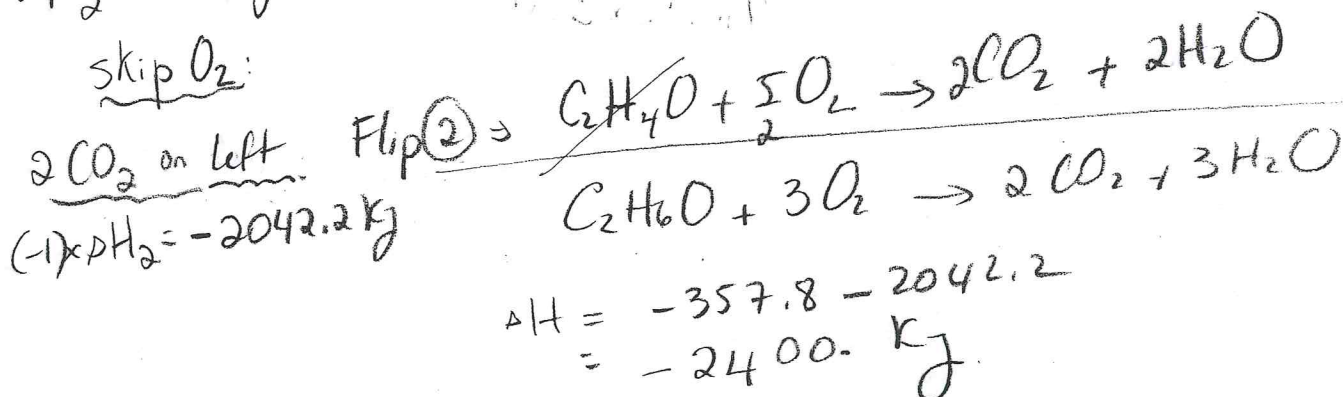 skip O₂:
2CO₂ on left. Flip ② ⇒ C₂H₄O + 5/2 O₂ → 2CO₂ + 2H₂O
(-1)×ΔH₂ = -2042.2 kJ C₂H₆O + 3O₂ → 2CO₂ + 3H₂O
ΔH = -357.8 - 2042.2
= -2400. kJ.